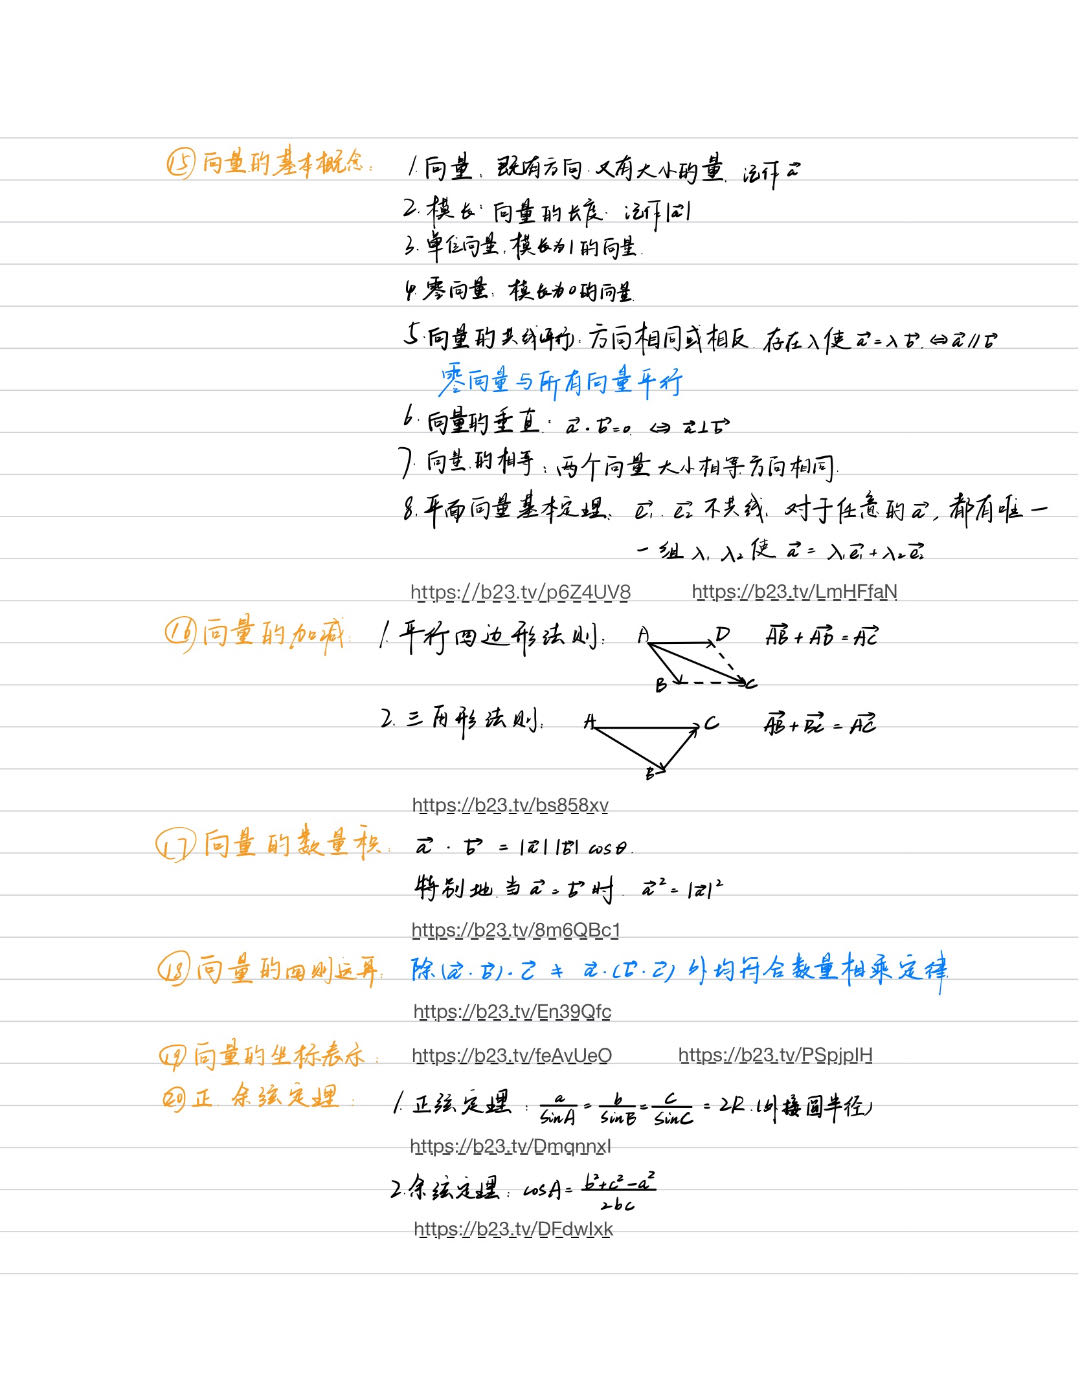 ⑮向量的基本概念: 1.向量: 既有方向又有大小的量. 记作a⃗
2.模长: 向量的长度. 记作|a⃗|
3.单位向量: 模长为1的向量.
4.零向量: 模长为0的向量
5.向量的共线(平行): 方向相同或相反 存在λ使a⃗=λb⃗ ⇔a⃗//b⃗
零向量与所有向量平行
6.向量的垂直: a⃗·b⃗=0 ⇔ a⃗⊥b⃗
7.向量的相等: 两个向量大小相等方向相同.
8.平面向量基本定理: e⃗₁. e⃗₂不共线. 对于任意的a⃗, 都有唯一
一组λ₁λ₂使 a⃗=λ₁e⃗₁+λ₂e⃗₂
https://b23.tv/p6Z4UV8 https://b23.tv/LmHFfaN
⑯向量的加减 1.平行四边形法则: A D B C AB⃗+AD⃗=AC⃗
2.三角形法则: A C B AB⃗+BC⃗=AC⃗
https://b23.tv/bs858xv
⑰向量的数量积: a⃗·b⃗=|a⃗||b⃗|cosθ.
特别地 当a⃗=b⃗时. a⃗²=|a⃗|²
https://b23.tv/8m6QBc1
⑱向量的四则运算: 除(a⃗·b⃗)·c⃗≠a⃗·(b⃗·c⃗)外均符合数量相乘定律
https://b23.tv/En39Qfc
⑲向量的坐标表示: https://b23.tv/feAvUeO https://b23.tv/PSpjpIH
⑳正.余弦定理: 1.正弦定理: a/sinA=b/sinB=c/sinC=2R.(外接圆半径)
https://b23.tv/DmqnnxI
2.余弦定理: cosA=(b²+c²-a²)/2bc
https://b23.tv/DFdwIxk